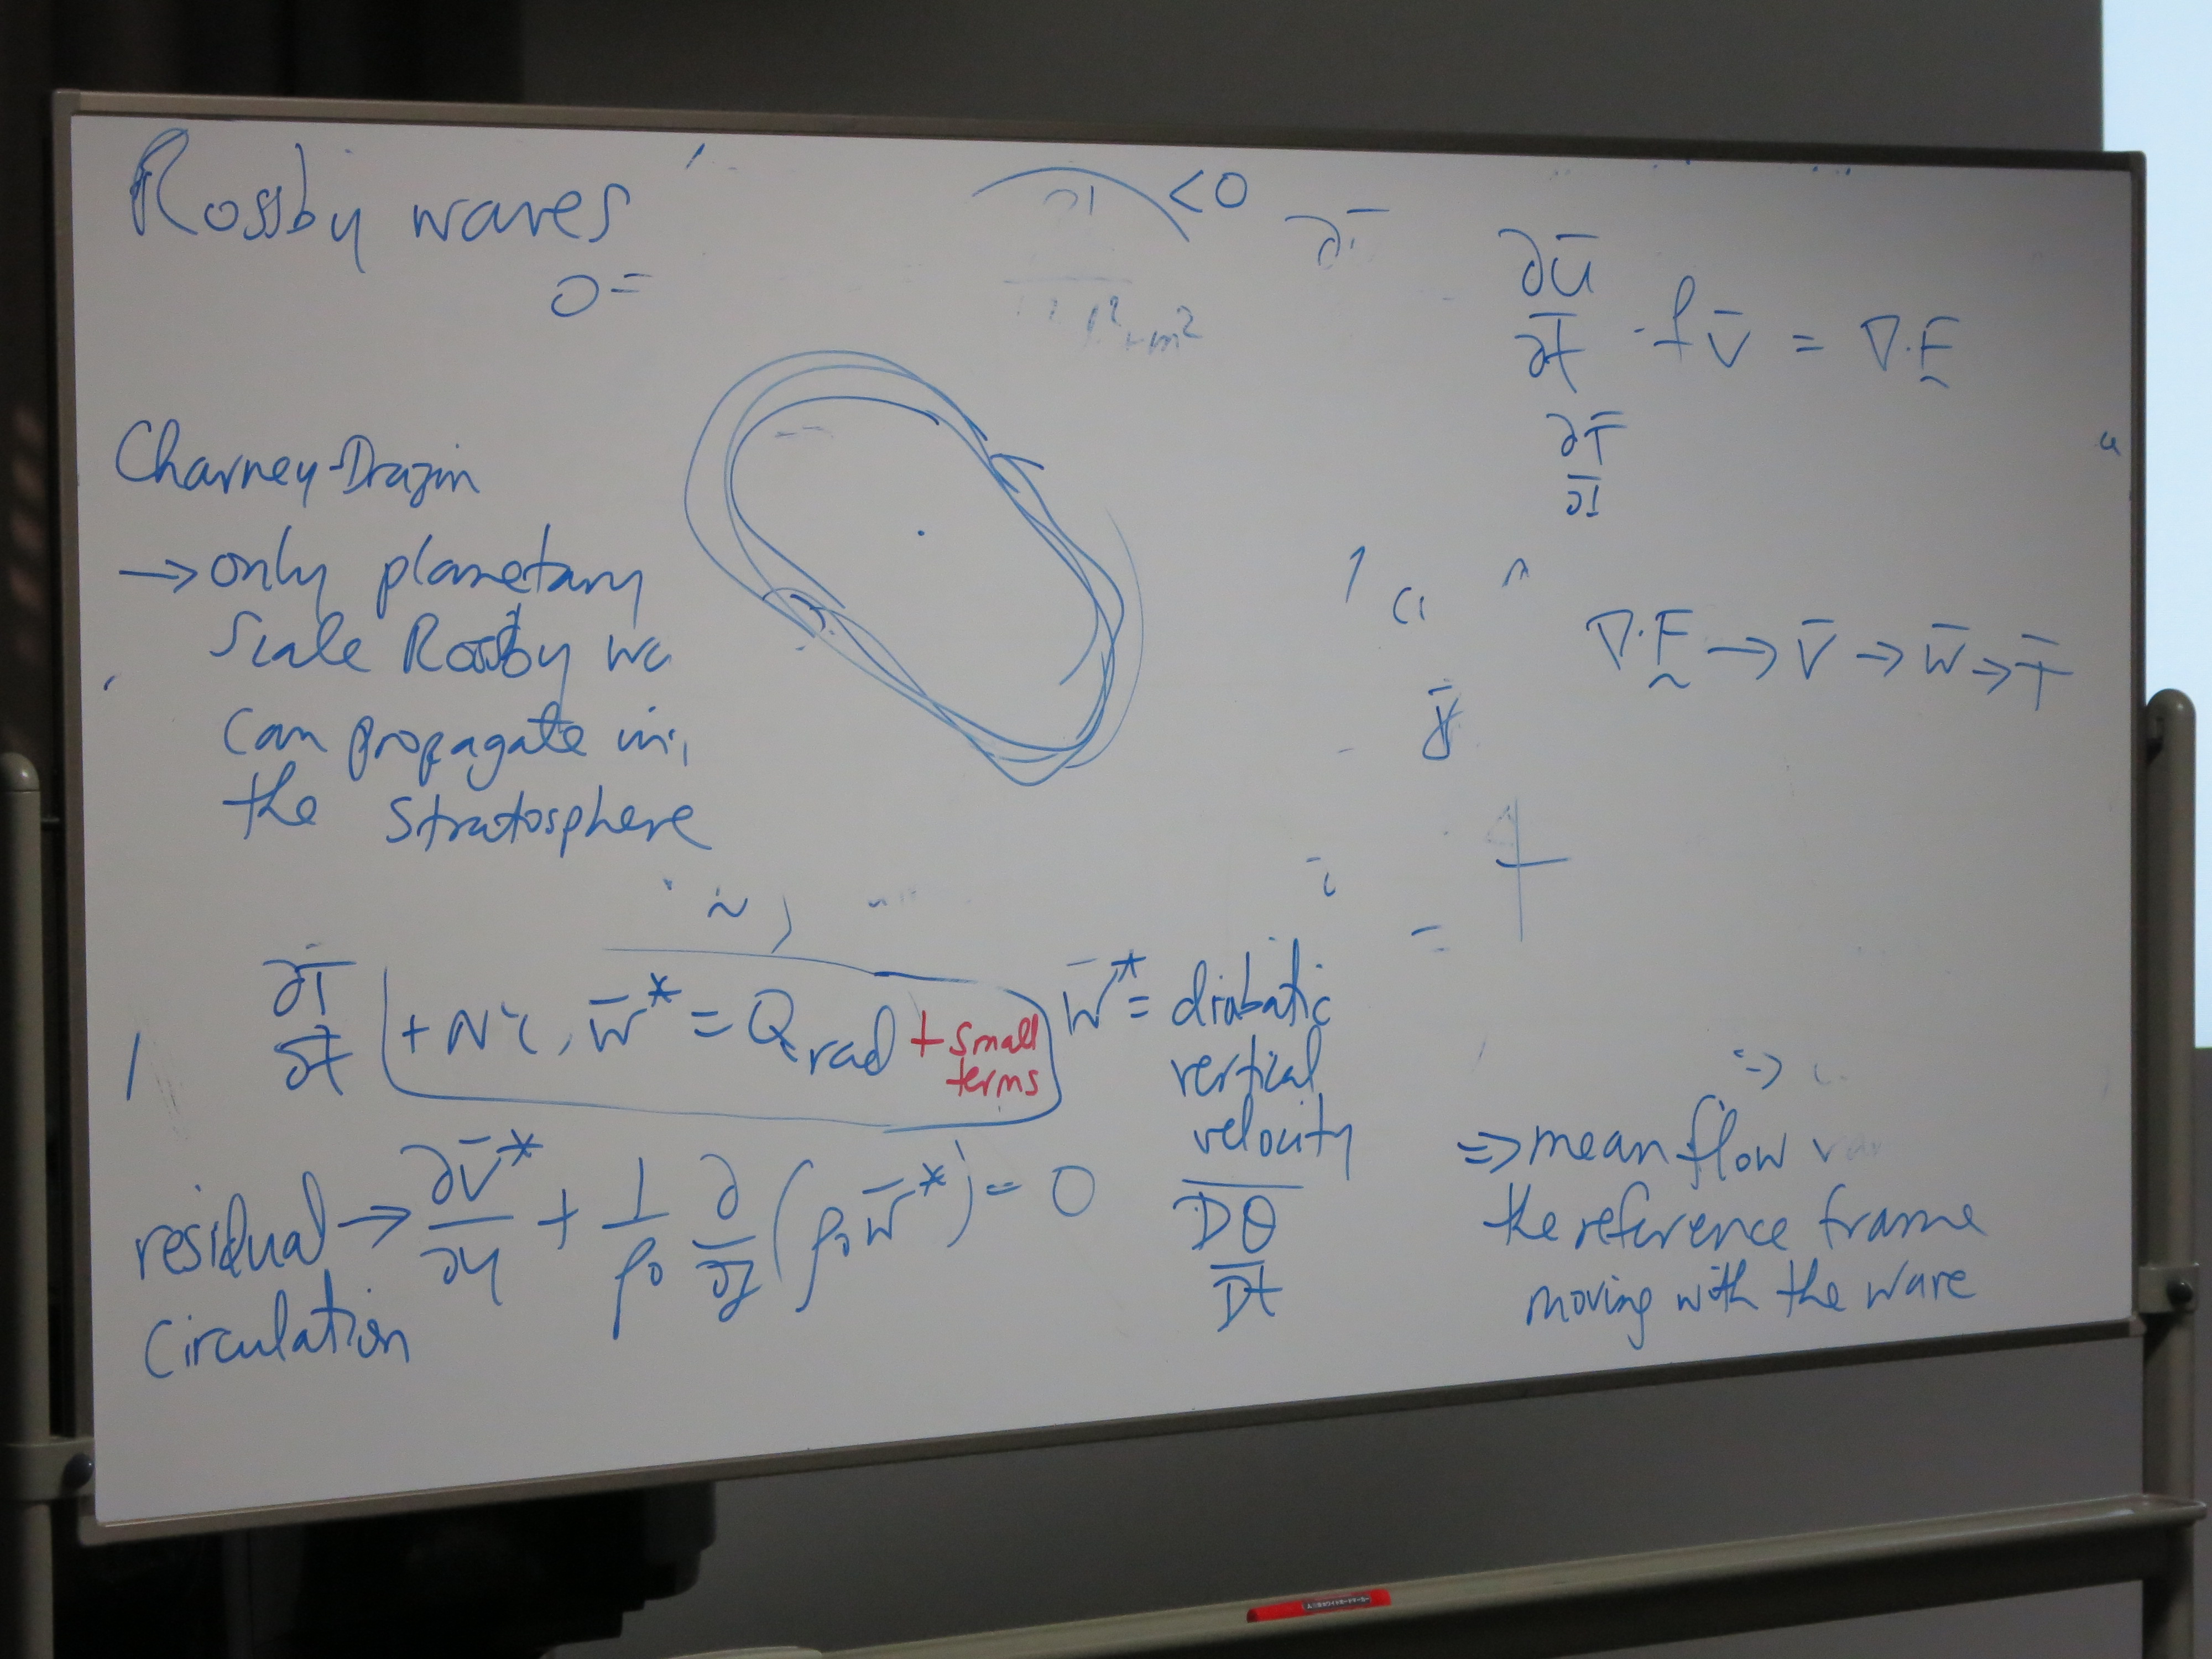 Rossby waves
0 =
< 0
Charney-Drazin
→ only planetary
Scale Rossby
can propagate
the stratosphere
∂ū/∂t - f v̄ = ∇·F̰
∂T̄/∂t
∇·F̰ → v̄ → w̄ → T̄
∂T̄/∂t + N² w̄* = Q_rad + small terms
w̄* = diabatic
vertical
velocity
D̅θ̅/Dt
residual → ∂v̄*/∂y + 1/ρ₀ ∂/∂z (ρ₀ w̄*) = 0
circulation
⇒ mean flow
the reference frame
moving with the wave